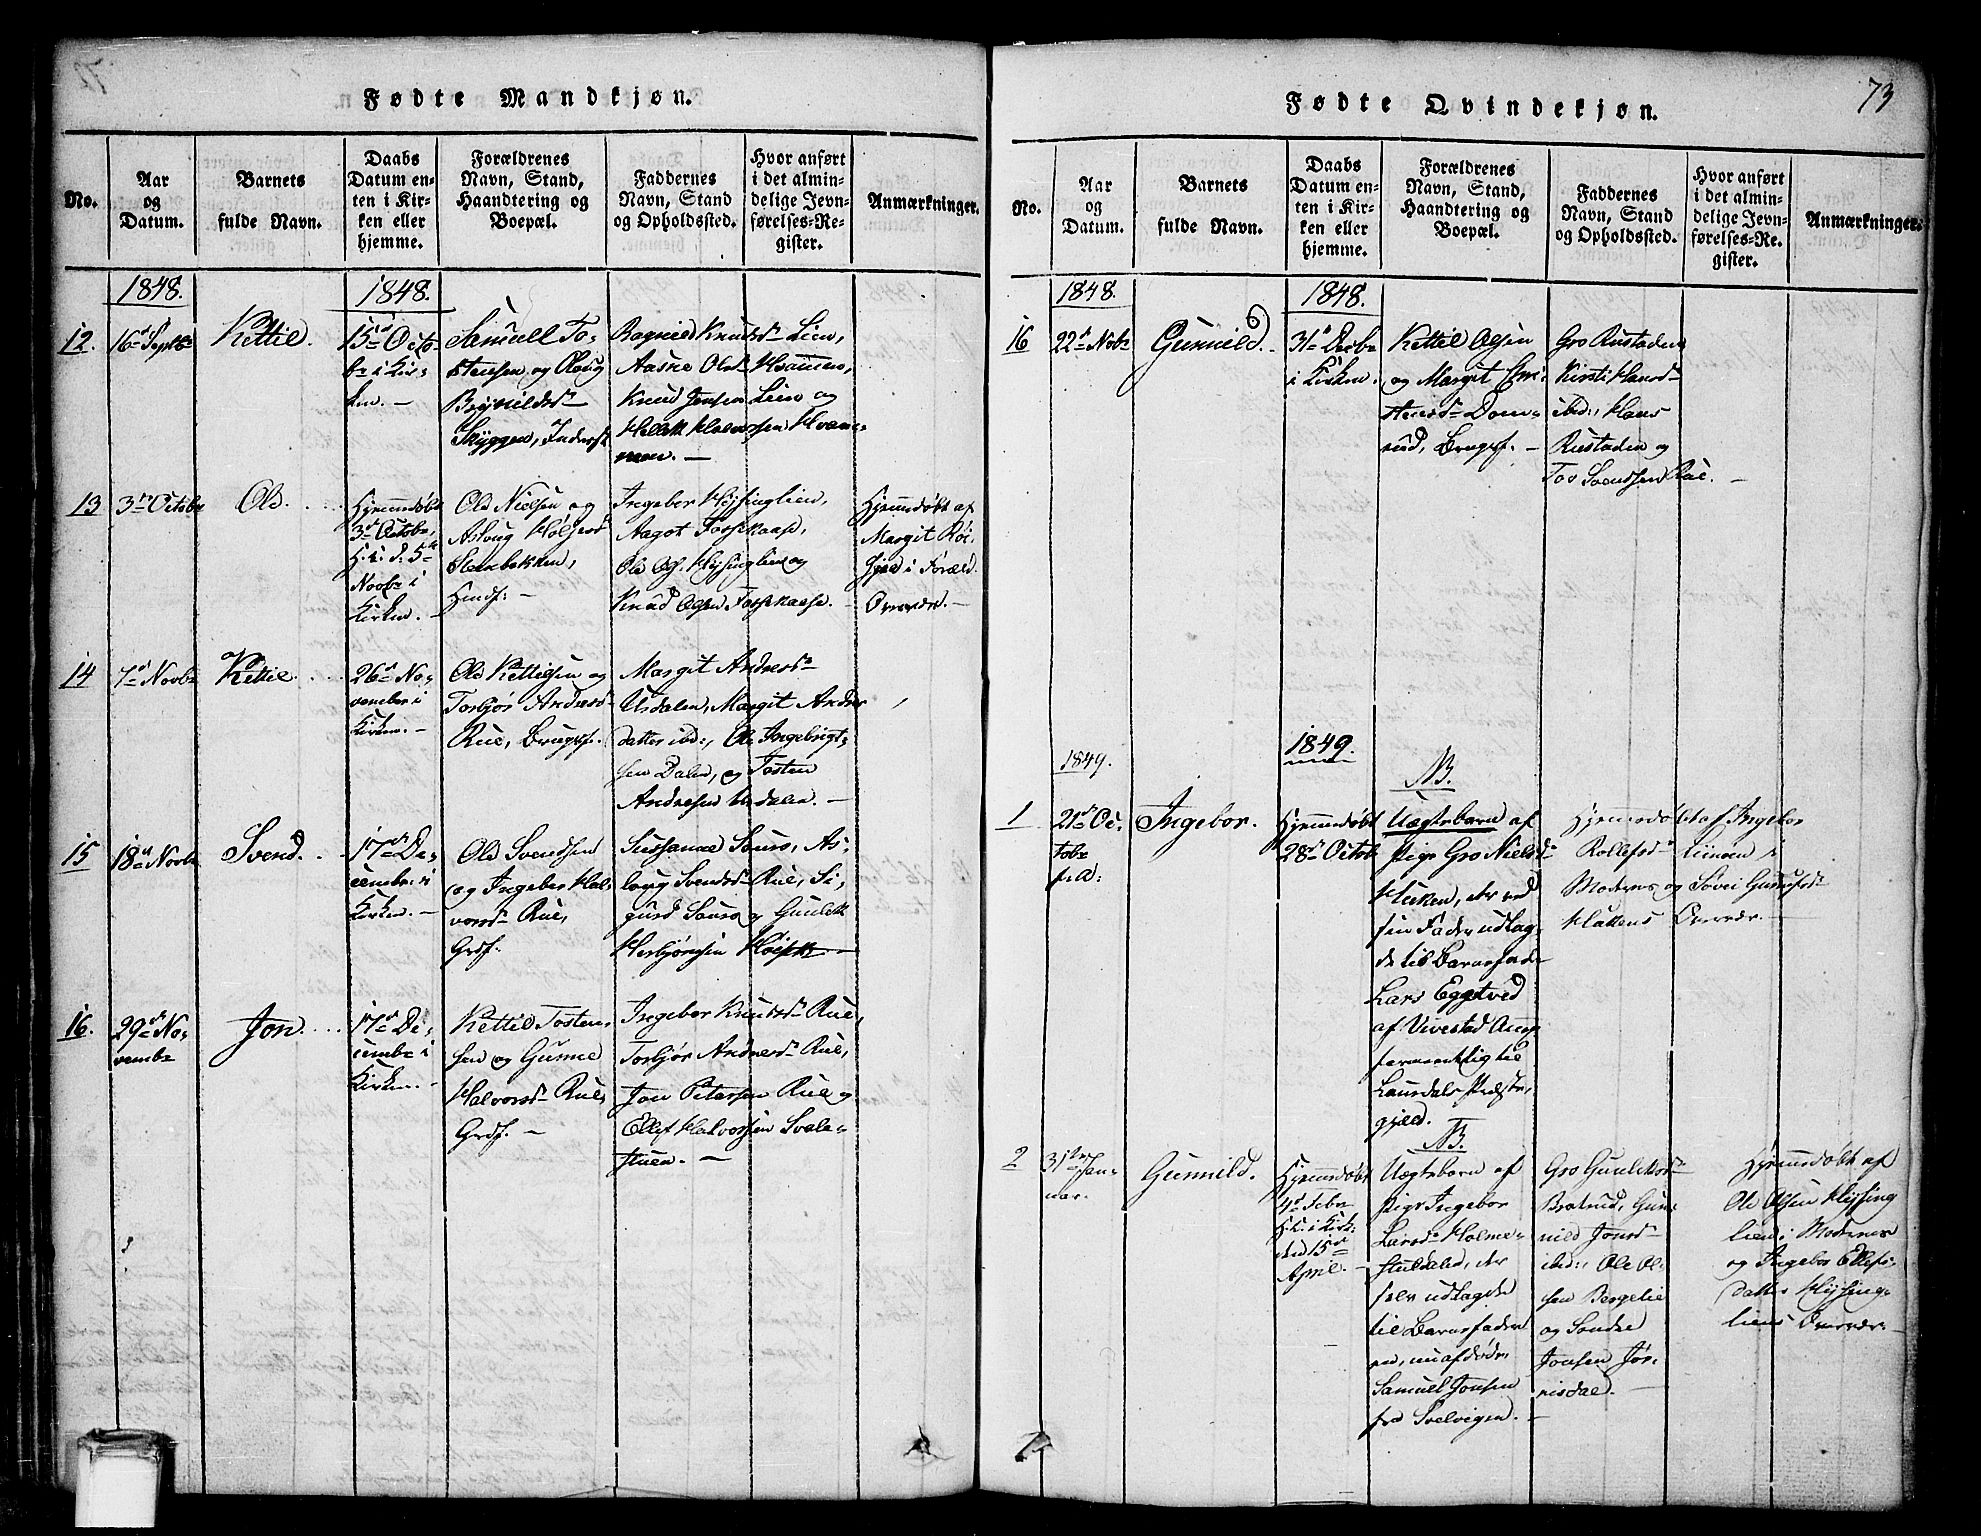 Fødte Mandkjøn.
No.
Aar og Datum.
Barnets fulde Navn.
Daabs Datum enten i Kirken eller hjemme.
Forældrenes Navn, Stand, Haandtering og Boepæl.
Faddernes Navn, Stand og Opholdssted.
Hvor anført i det almindelige Jevnførelses-Register.
Anmærkninger.
1848.
1848.
12.
16d Septbr
Kettil.
15d Octo-
br i Kir-
ken. -
Samuell To-
stensen og Oloug
Brynildsd
Skyggen, Inderst
Ragnild Knudsd Lien,
Aasne Olsd Hvammen,
Knud Jensen Lien og
Hellek Halvorsen Hvam-
men. -
13
3die Octobr
Ole.
Hjemmedøbt
3d Octobr,
5te
Novbr i
Kirken. -
Ole Nielsen og
Asloug
Steenbekken,
Huusf: -
Ingebor Hysinglien,
Aagot Fossekaase,
Ole Hysinglien og
Knud Olsen Fossekaase. -
Hjemmedøbt af
Margit
i Foræld.
Overvær. -
14
7d Novbr
Kettil.
26d No-
vember i
Kirken. -
Ole Kettilsen og
Torbjør Andersd
Rue, Brugsf.
Margit Andersd
Urdalen, Margit Anders
datter ibd:, Ole Ingebrigt-
sen Dalen, og Tosten
Andersen Urdalen. -
15
18d Novbr
Svend.
17d De-
cembr i
Kirken. -
Ole Svendsen
og Ingebor Hal-
vorsd Rue,
Grdf.
Sussanne Souro, As-
loug Svendsd Rue, Si-
gurd Souro og Gunlek
Herbjørnsen
16.
29d No-
vembr
Jon.
17d De-
cembr i
Kirken. -
Kettil Tosten-
sen og Gunne
Halvorsd Rue,
Grdf. -
Ingebor Knudsd Rue,
Torbjør Andersd Rue,
Jon Petersen Rue og
Ellef Halvorsen Svale-
stuen. -
Fødte Qvindekjøn.
73
No.
Aar og Datum.
Barnets fulde Navn.
Daabs Datum enten i Kirken eller hjemme.
Forældrenes Navn, Stand, Haandtering og Boepæl.
Faddernes Navn, Stand og Opholdssted.
Hvor anført i det almindelige Jevnførelses-Register.
Anmærkninger.
1848.
1848.
16
22d Novbr
Gunnild.
31d Decbr
i Kirken.
Kettil Olsen
og Margit Chri-
stensd Dom-
rud, Brugsf. -
Gro Rustaden
Kirsti Hansd
ibd:, Hans
Rustaden og
Tor Svendsen Rue. -
1849.
1849.
1
21d Oc-
tobr
f. A:
Ingebor.
Hjemmedøbt
28d Octob
NB.
Uægtebarn af
Pige Gro Nielsd
Huken, der ved
sin Fader udlag-
de til Barnefader
Lars Eggtved
af Vivestad
til
Laurdals Præste-
gjeld.
Hjemmedøbt af Ingebor
Rollefsd i
Moderens og
Overvær. -
2
31te Jan-
uar.
Gunnild.
Hjemmedøbt
4d Febr
i Kirk:
den 15d
April. -
NB.
Uægtebarn af
Pige Ingebor
Larsd Holme-
stuldalen, der
selv udlagde
til Barnefader
en, nu afdøde
Samuel Jonsen
fra Svelvigen. -
Gro Gunleksd
Bratrud, Gun-
nild Jonsd
ibd:, Ole Ol-
sen Bergelie
og Sondre
Jonsen Jør-
risdal. -
Hjemmedøbt af
Ole Olsen Hysing
lien i Moderens
og Ingebor Ellefs-
datter Hysing-
liens Overvær. -